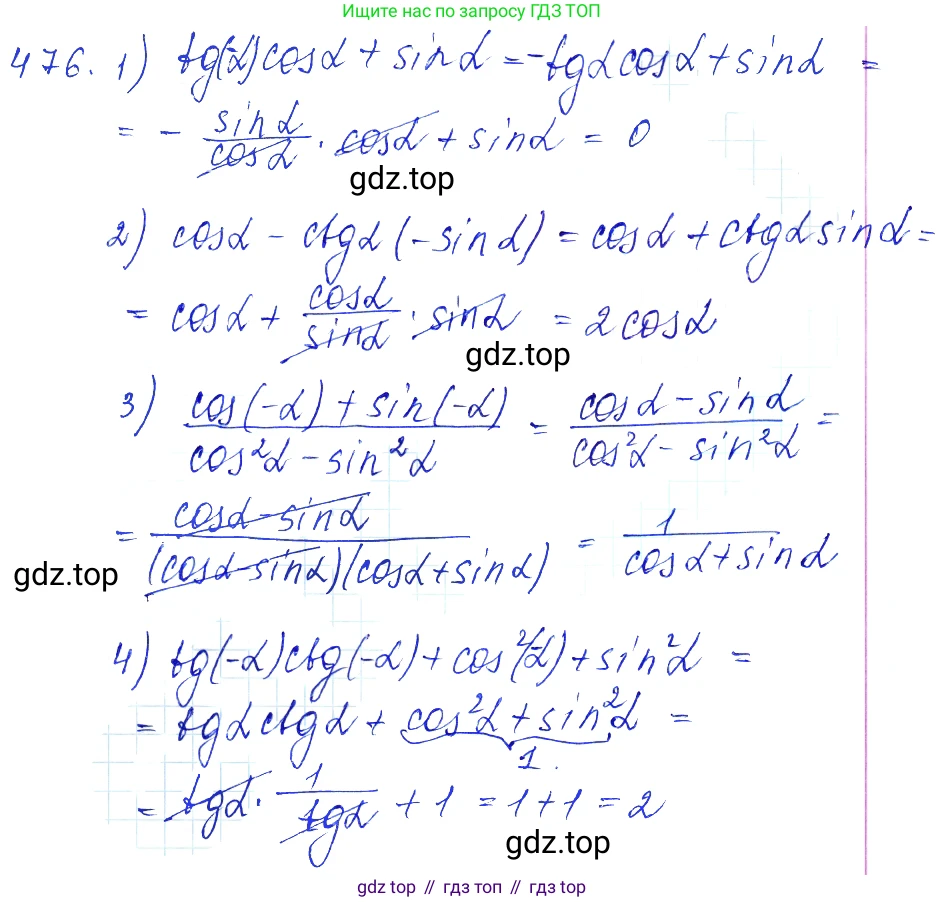 Ищите нас по запросу ГДЗ ТОП
476. 1) tg(-α)cosα + sinα = -tgα cosα + sinα =
= - sinα/cosα · cosα + sinα = 0
gdz.top
2) cosα - ctgα (-sinα) = cosα + ctgα sinα =
= cosα + cosα/sinα · sinα = 2cosα
gdz.top
3) (cos(-α) + sin(-α))/(cos²α - sin²α) = (cosα - sinα)/(cos²α - sin²α) =
= (cosα - sinα)/((cosα - sinα)(cosα + sinα)) = 1/(cosα + sinα)
gdz.top
4) tg(-α)ctg(-α) + cos²(-α) + sin²α =
= tgα ctgα + cos²α + sin²α =
1.
= tgα · 1/tgα + 1 = 1 + 1 = 2
gdz.top
gdz top // гдз топ // гдз top